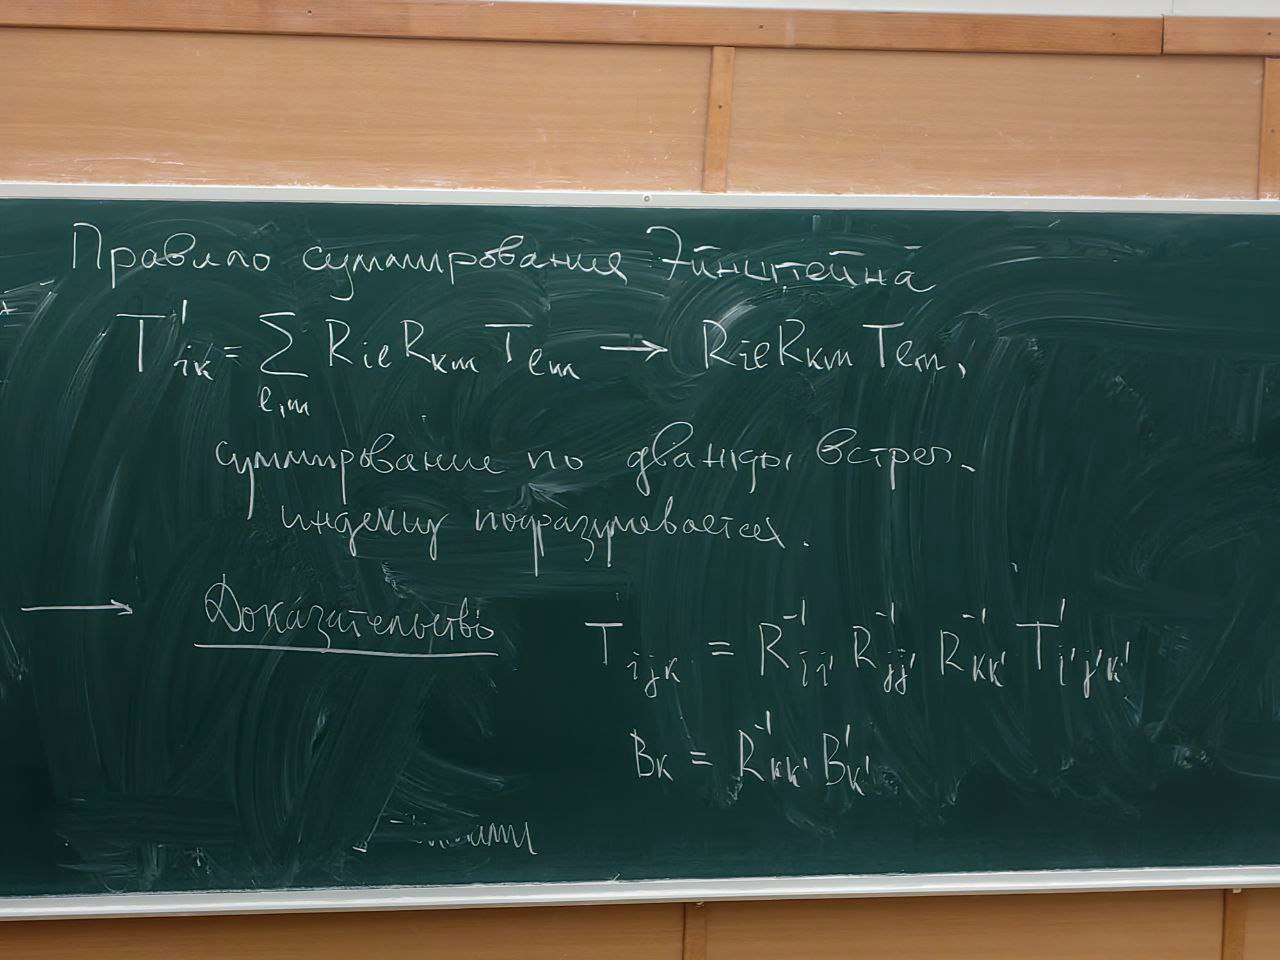 Правило суммирования Эйнштейна
T'ik = ∑ Rie Rкm Tem → Rie Rкm Tem,
e,m
суммирование по дважды встреч.
индексу подразумевается.
→ Доказательство
Tijk = R⁻¹ii' R⁻¹jj' R⁻¹kk' T'i'j'k'
Bк = R⁻¹кк' B'к'